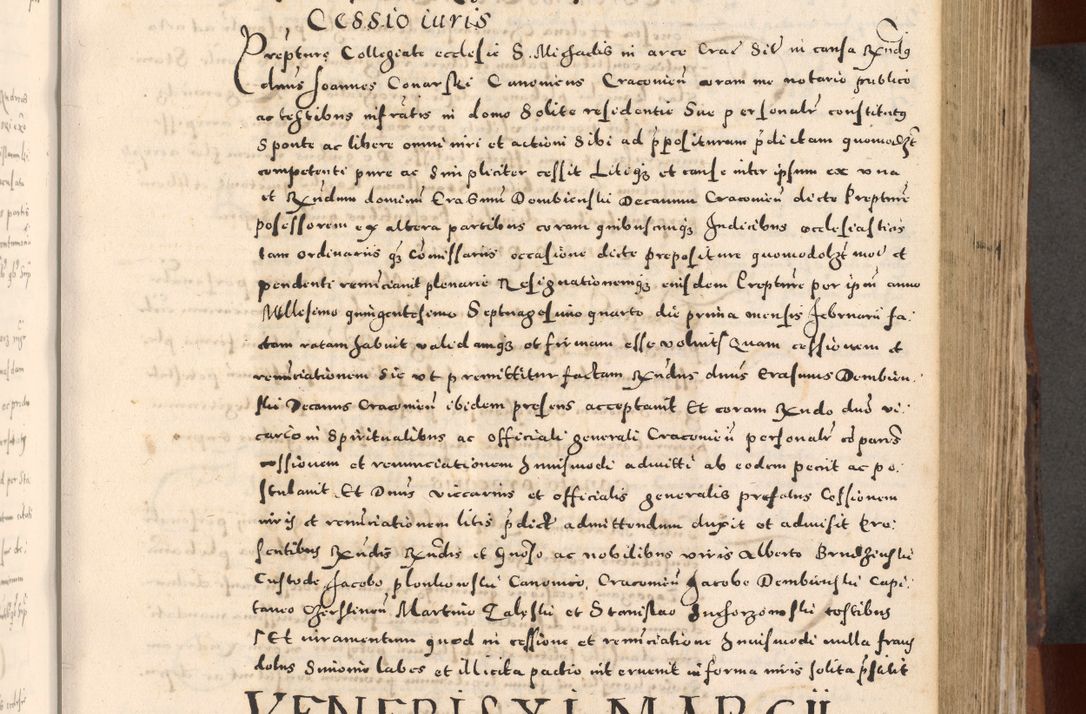 Cessio iuris
Prepture Collegiate ecclesie S. Michaelis in arce Crac̄ Sit̄ in causa Rx̄ndꝯ
dnus Joannes Conarski Canonicus Cracovieñ coram me notario publico
ac testibus infratis in domo Solite residentie Sue personalr̄ constitutꝯ
Sponte ac libere omni iuri et actioni Sibi ad p̄posituram p̄dictam quomodlȝt
competenti pure ac Simpliciter cessit Litiqȝ et cause inter ipsum ex una
et Rx̄ndum dominū Erasmū Dembienski Decanum Cracovieñ dicte Prepture
possessorem ex altera partibus coram quibuscunqȝ Judicibus ecclesiasticis
tam ordinariis qȝ Com̄issariis occasione dicte prepositure quomodolȝt mot̄ et
pendenti renūciavit plenarie Resignationemqȝ eiusdem Prepture per ipm̄ anno
Millesimo quingentesimo Septuagesimo quarto die prima mensis Februarii fa:
ctam ratam habuit validamqȝ et firmam esse voluit Quam cessionem et
renūciationem Sic ut premittitur factam Rx̄ndus dnus Erasmus Dembien:
ski Decanus Cracovieñ ibidem presens acceptavit Et coram Rx̄ndo dno vi:
cario in Spiritualibus ac officiali generali Cracovieñ personalr̄ cōparēs
cessionem et renunciationem huiusmodi admitti ab eodem peciit ac po:
stulavit Et Dnus viccarius et officialis generalis prefatus Cessionem
iuris et renūciationem litis p̄dict̄ admittendum duxit et admisit Pre:
sentibus Rx̄ndis Rx̄ndis et Gnōso ac nobilibus viris Alberto
Custode Jacobo Canonico, Cracovieñ Jacobo Dembienski Capi:
taneo Martino et Stanislao testibus
Et iuramentum quod in cessione et renūciatione huiusmodi nulla fraus
dolus Simonie labes et illicita pactio int̄ervenit in forma iuris solita p̄stitit
VENERIS XI MARCII